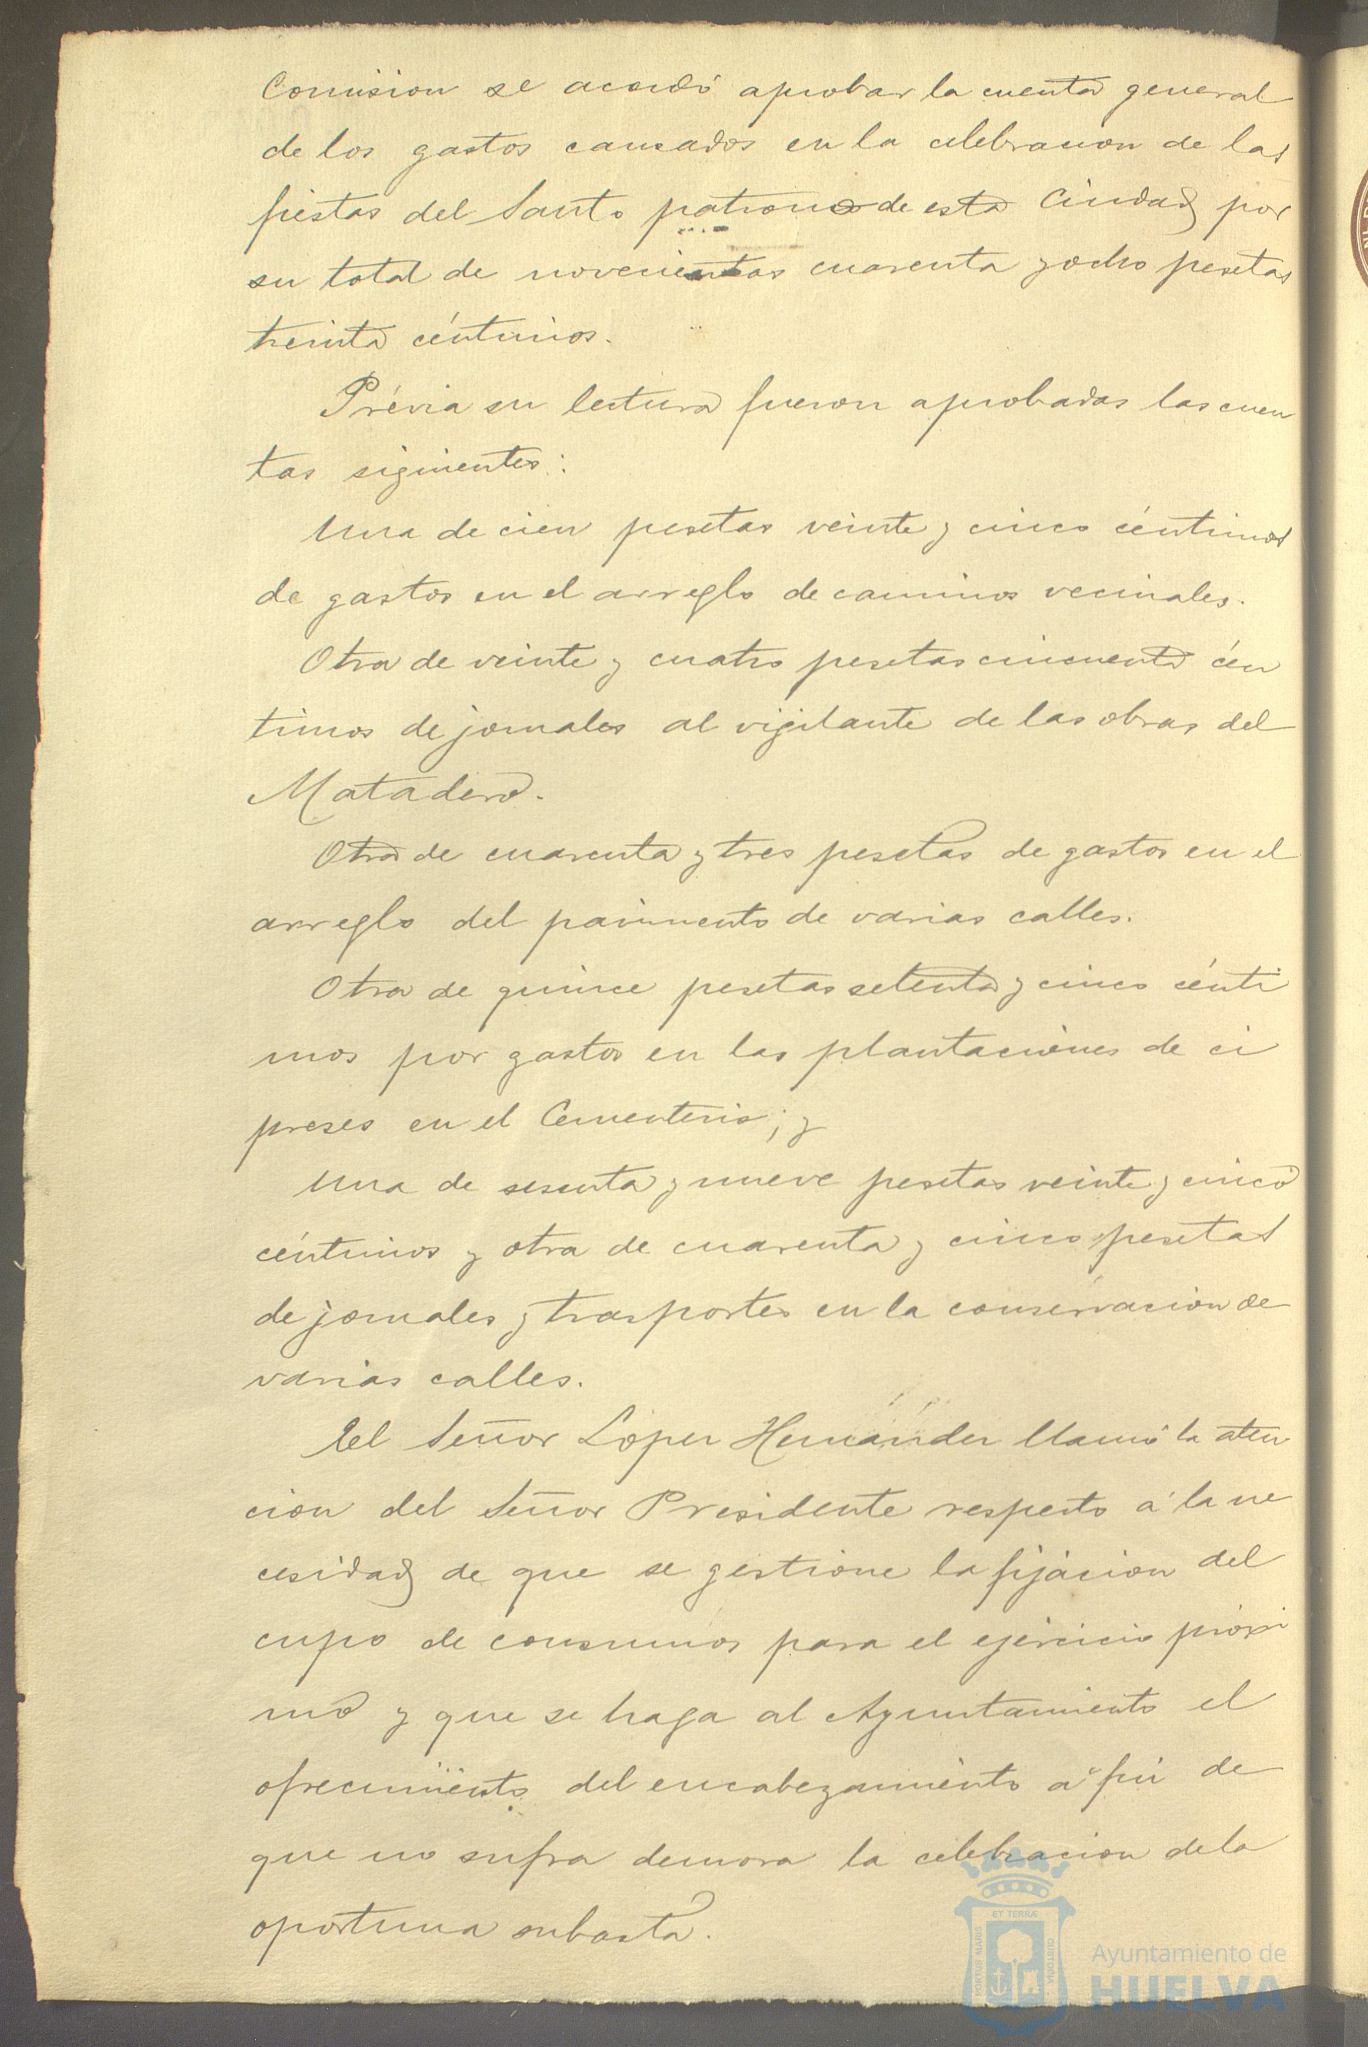 Comision se acordó aprobar la cuenta general
de los gastos causados en la celebracion de las
fiestas del Santo patrono de esta Ciudad por
su total de novecientas cuarenta y ocho pesetas
treinta céntimos.
Prévia su lectura fueron aprobadas las cuen
tas siguientes:
Una de cien pesetas veinte y cinco céntimos
de gastos en el arreglo de caminos vecinales.
Otra de veinte y cuatro pesetas cincuenta cén
timos de jornales al vigilante de las obras del
Matadero.
Otra de cuarenta y tres pesetas de gastos en el
arreglo del pavimento de varias calles.
Otra de quince pesetas setenta y cinco cénti
mos por gastos en las plantaciones de ci
preses en el Cementerio; y
Una de sesenta y nueve pesetas veinte y cinco
céntimos y otra de cuarenta y cinco pesetas
de jornales y trasportes en la conservacion de
varias calles.
El Señor Lopez Hernández llamó la aten
cion del Señor Presidente respecto á la ne
cesidad de que se gestione la fijacion del
cupo de consumos para el ejercicio próxi
mo y que se haga al Ayuntamiento el
ofrecimiento del encabezamiento á fin de
que no sufra demora la celebracion de la
oportuna subasta.
PORTUS MARIS ET TERRÆ CUSTODIA
Ayuntamiento de
HUELVA